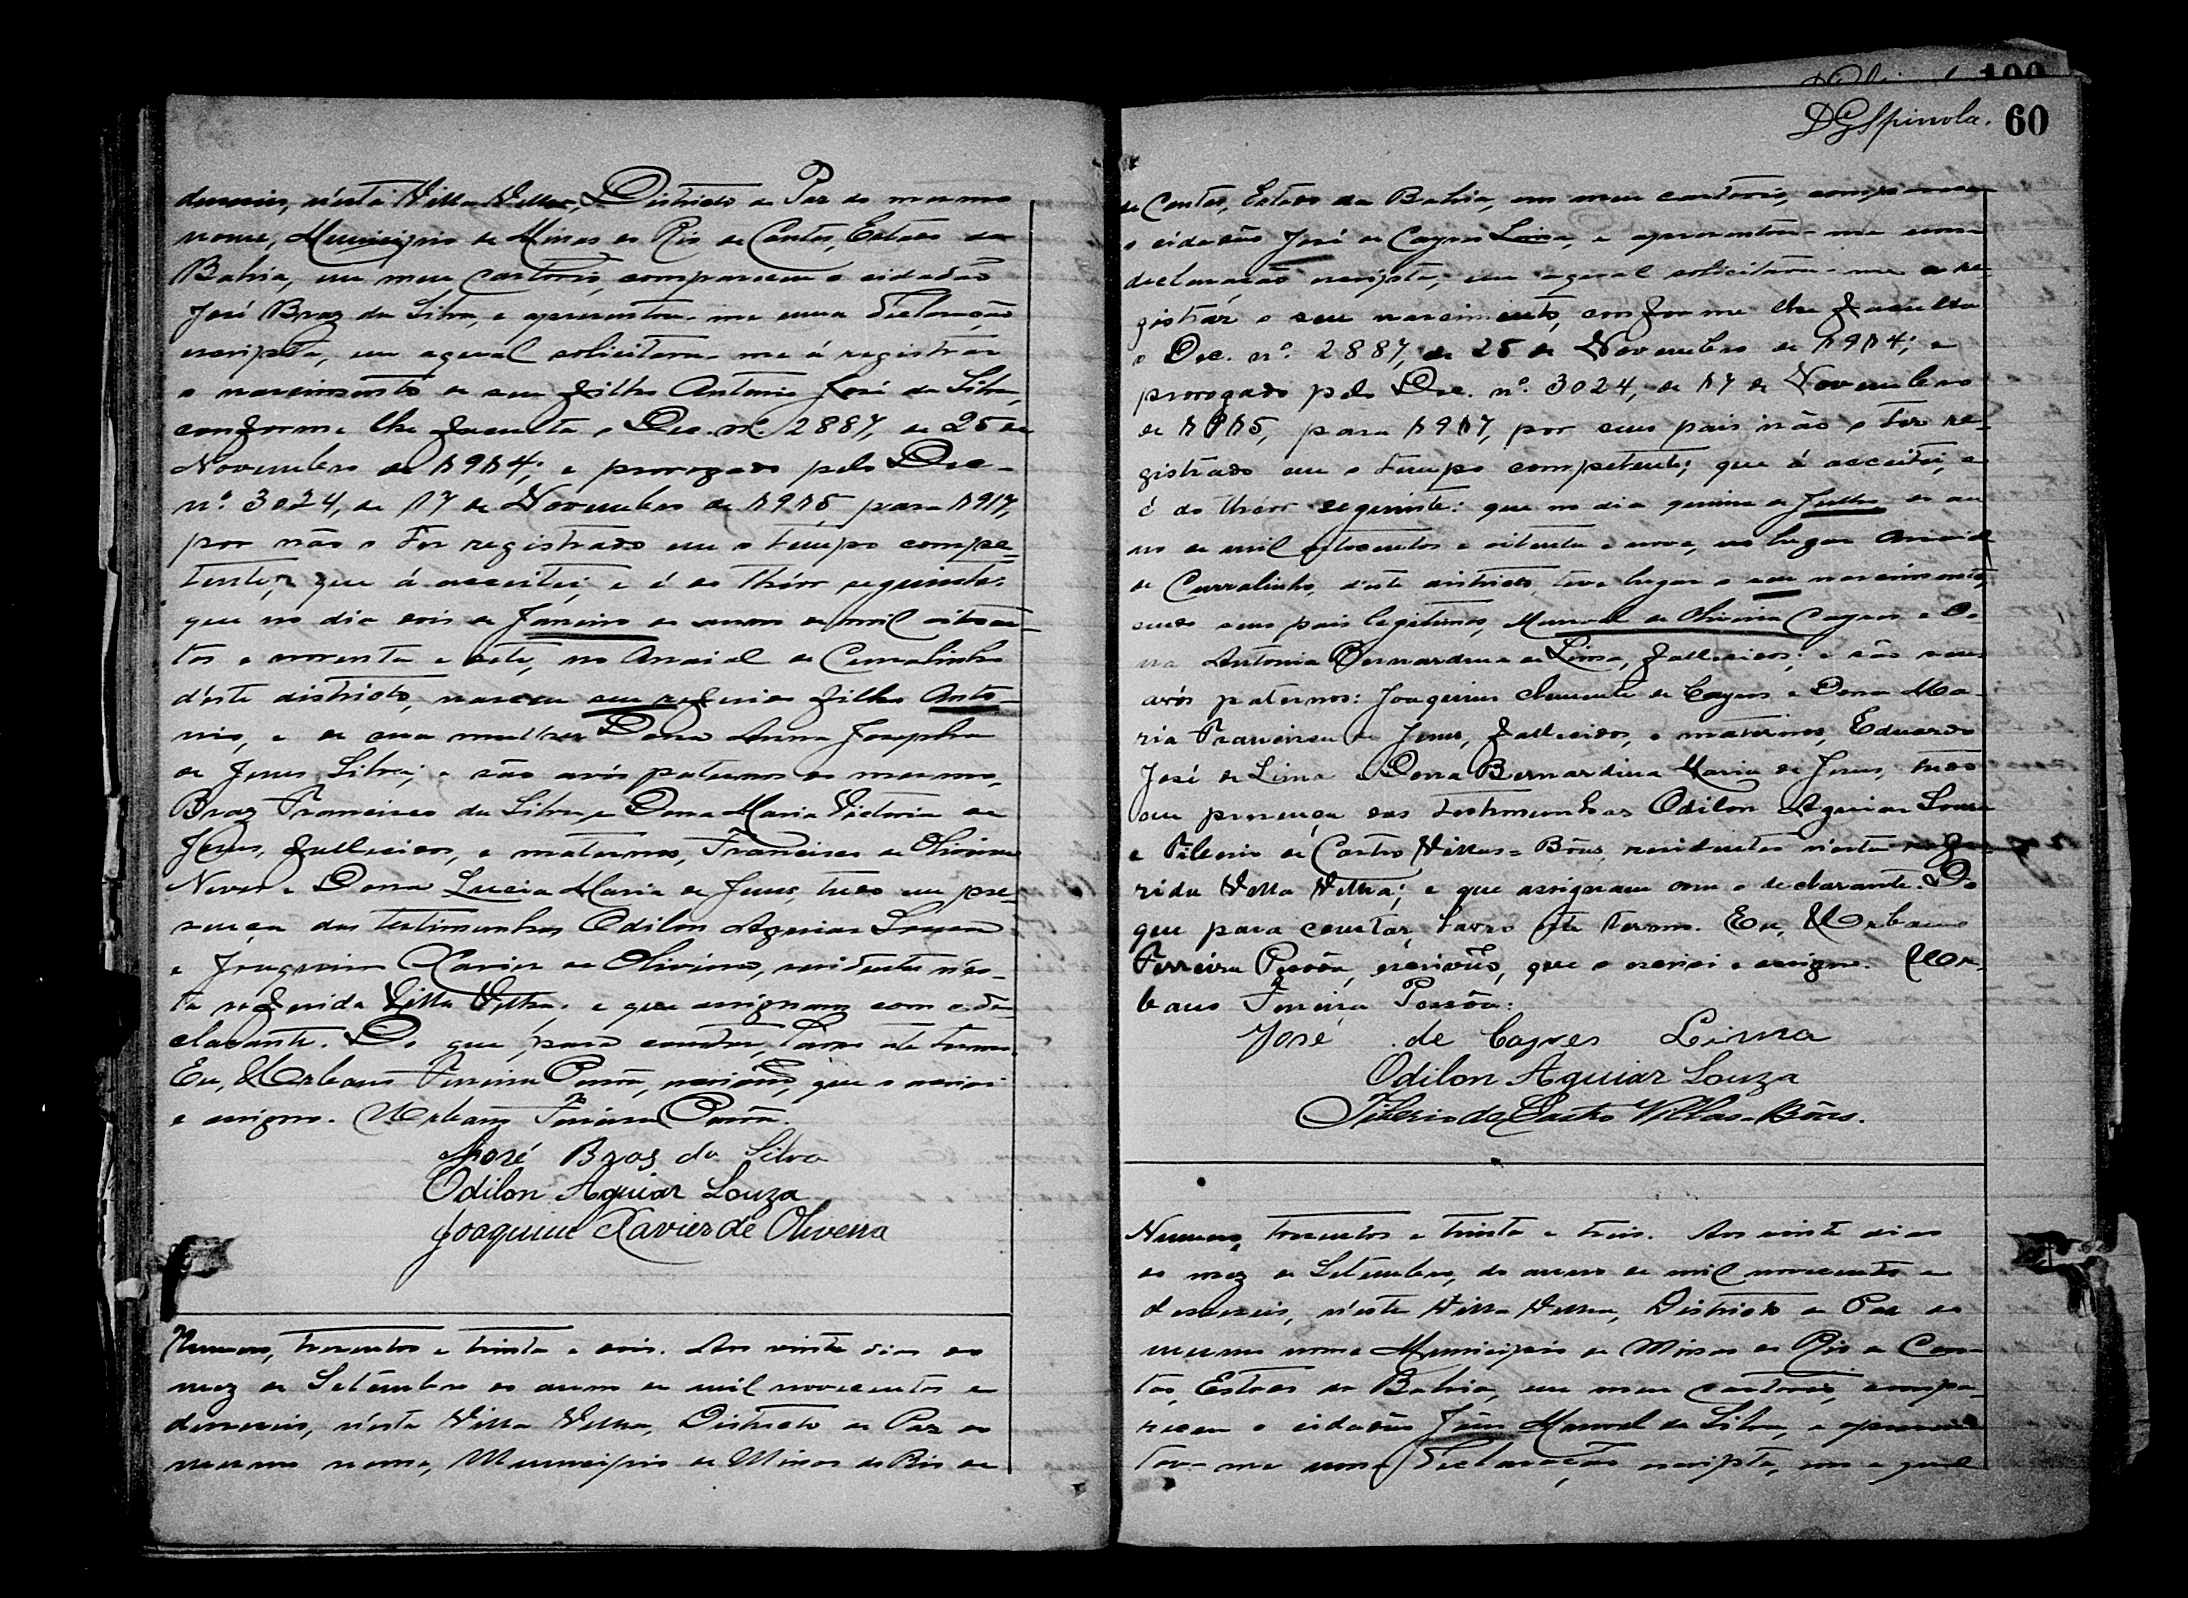 deseseis, n'esta Villa Velha, Districto de Paz do mesmo
nome, Municipio de Minas do Rio de Contas, Estado da
Bahia, em meu cartorio, compareceu o cidadão
José Braz da Silva, e apresentou-me uma declaração
escripta, em a qual solicitava-me á registrar
o nascimento de seu filho Antonio José da Silva,
conforme lhe faculta o Dec. nº 2887, de 25 de
Novembro de 1914; e prorogado pelo Dec.
nº 3024, de 17 de Novembro de 1915 para 1917,
por não o ter registrado em o tempo compe-
tente; que á acceitei; e é do théor seguinte:
que no dia dois de Janeiro do anno de mil oitocen-
tos e noventa e sete, no Arraial de Curralinho
d'este districto, nasceu seu referido filho Anto-
nio, e de sua mulher Dona Anna Josepha
de Jesus Silva; e são avós paternos do mesmo,
Braz Francisco da Silva e Dona Maria Victoria de
Jesus, fallecidos, e maternos, Francisco de Oliveira
Neves e Dona Lucia Maria de Jesus, tudo em pre-
sença das testimunhas Odilon Aguiar Souza
e Joaquim Xavier de Oliveira, residentes n'es-
ta referida Villa Velha; e que assignam com o de-
clarante. Do que, para constar, lavro este termo.
Eu, Urbano Ferreira Pessôa, escrivão, que o escrevi
e assigno. Urbano Ferreira Pessôa.
José Braz da Silva
Odilon Aguiar Souza
Joaquim Xavier de Oliveira
Numero, trezentos e trinta e dois. Aos vinte dias do
mez de Setembro do anno de mil novecentos e
deseseis, n'esta Villa Velha, Districto de Paz do
mesmo nome, Municipio de Minas do Rio de
DGSpinola. 60
de Contas, Estado da Bahia, em meu cartorio, compareceu
o cidadão José de Cayres Lima, e apresentou-me uma
declaração escripta, em a qual solicitava-me a re-
gistrar o seu nascimento, conforme lhe faculta
o Dec. nº 2887, de 25 de Novembro de 1914; e
prorogado pelo Dec. nº 3024, de 17 de Novembro
de 1915, para 1917, por seus pais não o ter re-
gistrado em o tempo competente; que á acceitei, e
é do théor seguinte: que no dia quinze de Julho do an-
no de mil oitocentos e oitenta e nove, no lugar Arraial
de Curralinho, d'este districto, teve lugar o seu nascimento,
sendo seus pais legitimos, Manoel de Oliveira Cayres e Do-
na Antonia Bernardina de Lima, fallecidos; e são seus
avós paternos: Joaquim Clemente de Cayres e Dona Ma-
ria Francisca de Jesus, fallecidos, e maternos, Eduardo
José de Lima e Dona Bernardina Maria de Jesus, tudo
em presença das testimunhas Odilon Aguiar Souza
e Tiberio de Castro Villas-Bôas, residentes n'esta refe-
rida Villa Velha; e que assignam com o declarante. Do
que para constar, lavro este termo. Eu, Urbano
Ferreira Pessôa, escrivão, que o escrevi e assigno. Ur-
bano Ferreira Pessôa.
José de Cayres Lima
Odilon Aguiar Souza
Tiberio de Castro Villas-Bôas.
Numero, trezentos e trinta e treis. Aos vinte dias
do mez de Setembro, do anno de mil novecentos e
deseseis, n'esta Villa Velha, Districto de Paz do
mesmo nome Municipio de Minas do Rio de Con-
tas, Estado da Bahia, em meu cartorio, compa-
receu o cidadão João Manoel da Silva, e apresen-
tou-me uma declaração escripta, em a qual